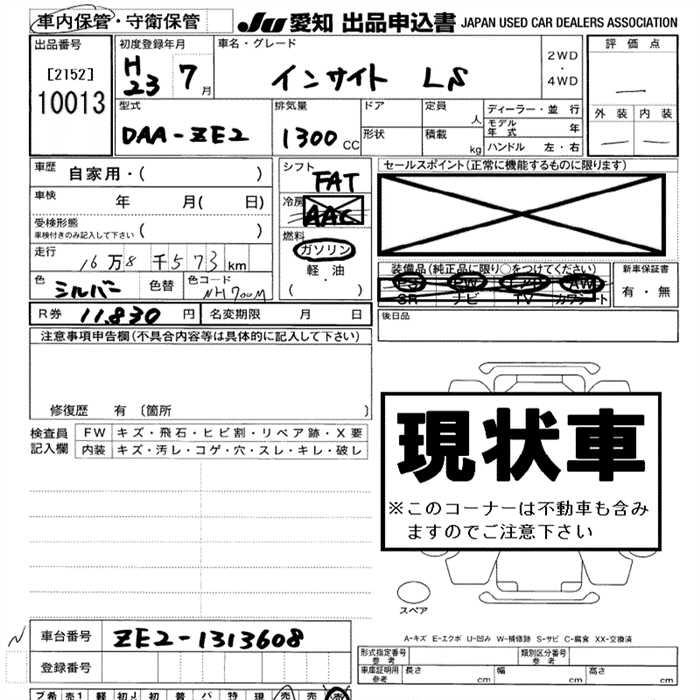 車内保管・守衛保管 JU 愛知 出品申込書 JAPAN USED CAR DEALERS ASSOCIATION
出品番号 初度登録年月 車名・グレード 評価点
[2152] H23 7月 インサイト LS 2WD・4WD
10013 外装 内装
型式 排気量 ドア 定員 人 ディーラー・並行
モデル年式 年
DAA-ZE2 1300cc 形状 積載 kg ハンドル 左・右
車歴 自家用・( )
シフト FAT
セールスポイント(正常に機能するものに限ります)
車検 年 月( 日)
冷房 AAC
受検形態 ( )
車検付きのみ記入して下さい
燃料 ガソリン
軽・油
( ・ )
走行 16万8千573km
装備品(純正品に限り○をつけてください) 新車保証書
PS PW エアB AW
SR ナビ TV カワシート 有・無
色 シルバー 色替 色コード NH700M
R券 11,830円 名変期限 月 日 後日品
注意事項申告欄(不具合内容等は具体的に記入して下さい)
修復歴 有 [箇所 ]
現状車
※このコーナーは不動車も含み
ますのでご注意下さい
検査員記入欄 FW キズ・飛石・ヒビ割・リペア跡・X要
内装 キズ・汚レ・コゲ・穴・スレ・キレ・破レ
スペア
A-キズ E-エクボ U-凹み W-補修跡 S-サビ C-腐食 XX-交換済
車台番号 ZE2-1313608
登録番号
形式指定番号 参考 類別区分番号 参考
車庫証明用 参考 長さ cm 幅 cm 高さ cm